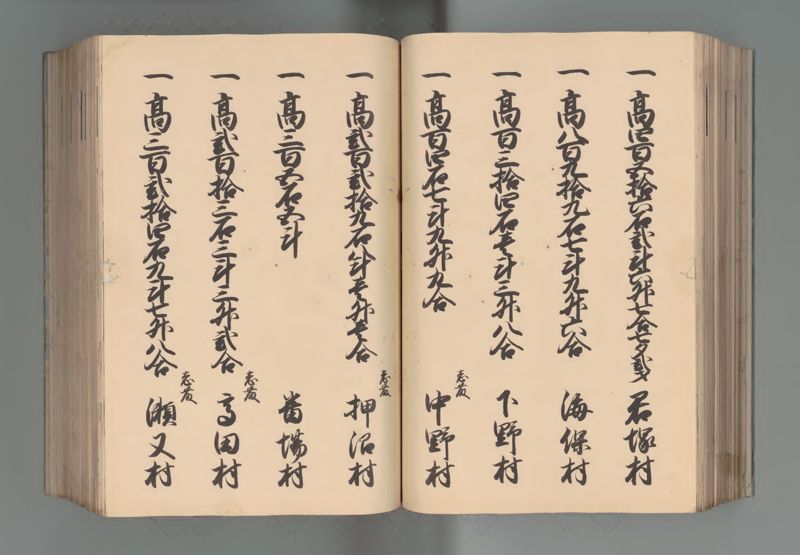 一 高四百五拾六石弐斗六升七合七夕弐才 君塚村
一 高八百九拾九石七斗九升六合 海保村
一 高百三拾四石壱斗三升八合 下野村
一 高百四石七斗九升九合 中野村
一 高弐百弐拾九石八斗壱升壱合 押沼村
一 高三百五石五斗 番場村
一 高弐百拾三石三斗三升弐合 高田村
一 高三百弐拾四石九斗七升八合 瀬又村